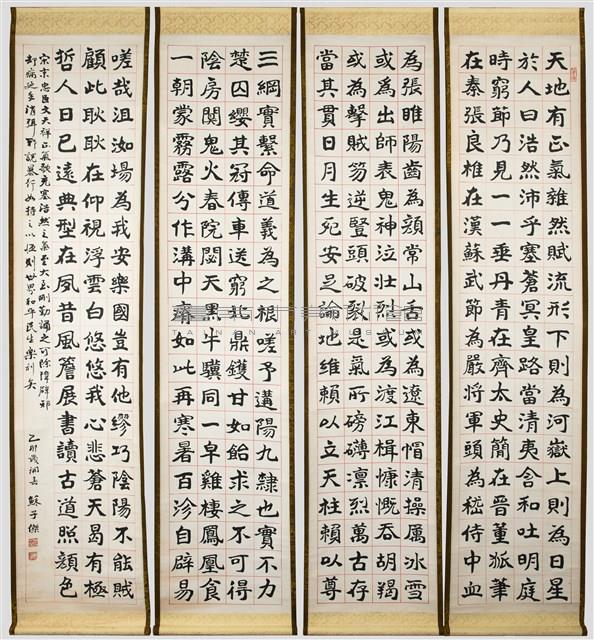 天地有正氣雜然賦流形下則為河嶽上則為日星
於人曰浩然沛乎塞蒼冥皇路當清夷含和吐明庭
時窮節乃見一一垂丹青在齊太史簡在晉董狐筆
在秦張良椎在漢蘇武節為嚴將軍頭為嵇侍中血
為張睢陽齒為顏常山舌或為遼東帽清操厲冰雪
或為出師表鬼神泣壯烈或為渡江楫慷慨吞胡羯
或為擊賊笏逆豎頭破裂是氣所磅礴凛烈萬古存
當其貫日月生死安足論地維賴以立天柱賴以尊
三綱實繫命道義為之根嗟予遘陽九隸也實不力
楚囚纓其冠傳車送窮北鼎鑊甘如飴求之不可得
陰房闃鬼火春院閟天黑牛驥同一皁雞棲鳳凰食
一朝蒙霧露分作溝中瘠如此再寒暑百沴自辟易
嗟哉沮洳場為我安樂國豈有他繆巧陰陽不能賊
顧此耿耿在仰視浮雲白悠悠我心悲蒼天曷有極
哲人日已遠典型在夙昔風簷展書讀古道照顏色
忠臣文天祥正氣歌充塞浩然之氣至大至剛勤誦之可除障辟邪
却病延年消弭邪說暴行如持之以恆則世界和平民生樂利矣
乙卯歲 蘇子傑
TAINAN ART MUSEUM